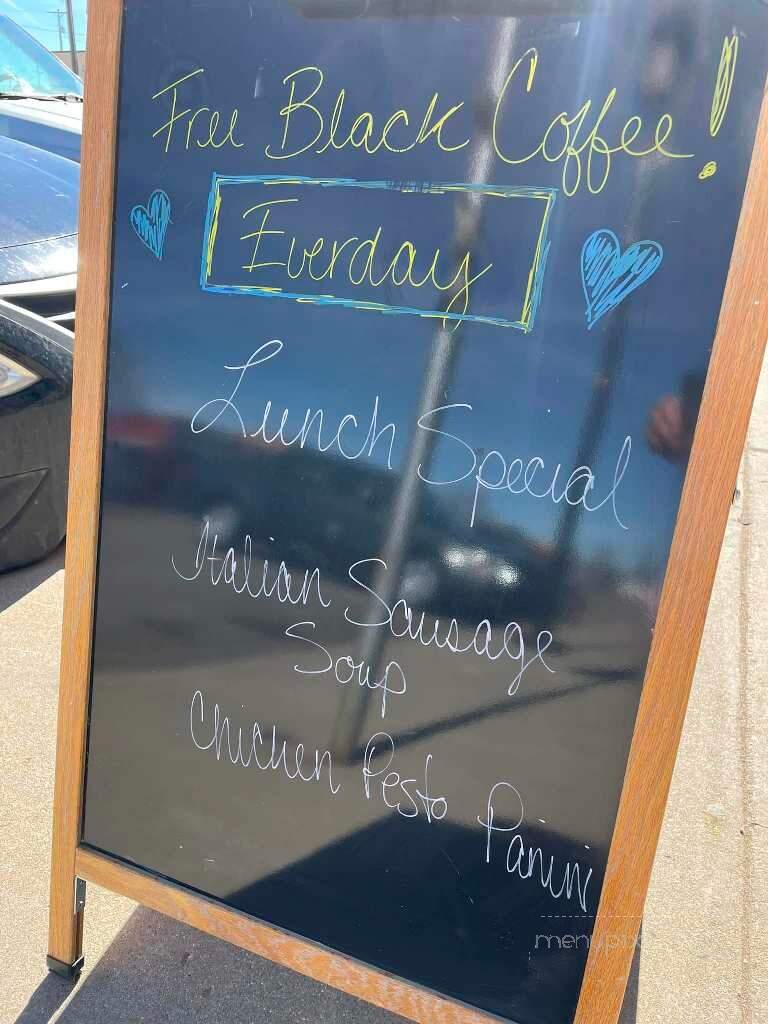 Free Black Coffee!
Everday
Lunch Special
Italian Sausage
Soup
Chicken Pesto Panini